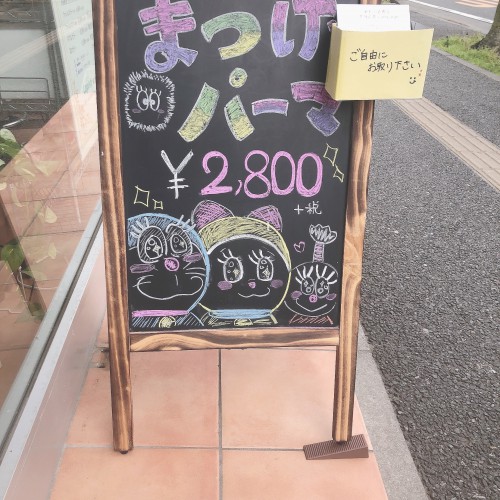 まつげ
パーマ
¥2,800
+税
ご自由に
お取り下さい